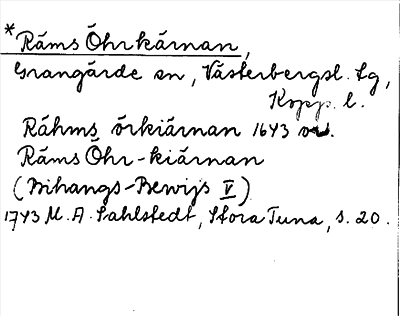 *Räms Öhrkärnan,
Grangärde sn, Västerbergsl. tg,
Kopp. l.
Rähms örkiärnan 1643
Räms Öhr-kiärnan
(Bihangs-Bewijs V)
1743 M. A. Sahlstedt, Stora Tuna, s. 20.